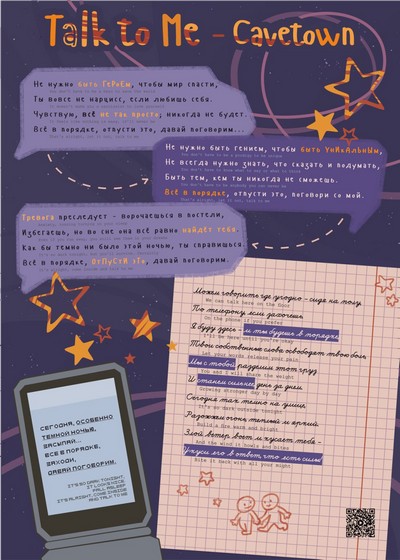 Talk to Me - Cavetown
Не нужно быть Героем, чтобы мир спасти,
Ты вовсе не нарцисс, если любишь себя.
Чувствую, всё не так просто, никогда не будет.
Всё в порядке, отпусти это, давай поговорим...
Не нужно быть гением, чтобы быть уникальным,
Не всегда нужно знать, что сказать и подумать,
Быть тем, кем ты никогда не сможешь.
Всё в порядке, отпусти это, поговори со мной.
Тревога преследует - ворочаешься в постели,
Избегаешь, но во сне она всё равно найдёт тебя
Как бы темно ни было этой ночью, ты справишься.
Всё в порядке, отпусти это, давай поговорим.
Можем говорить где угодно - сидя на полу,
We can talk here on the floor
По телефону, если захочешь
On the phone if you prefer
Я буду здесь - и ты будешь в порядке
I'll be here until you're okay
Твои собственные слова освободят твою боль
Let your words release your pain
Мы с тобой разделим этот груз
You and I will share the weight
И станем сильнее день за днём
Growing stronger day by day
Сегодня так темно на улице,
It's so dark outside tonight
Разожжём огонь теплый и яркий
Build a fire warm and bright
Злой ветер воет и кусает тебя -
And the wind it howls and bites
Укуси его в ответ, что есть силы!
Bite it back with all your might
Сегодня, особенно
темной ночью,
засыпай...
Все в порядке,
заходи,
давай поговорим.
It's so dark tonight,
It looks nice
Fall asleep
It's alright, come inside
and talk to me